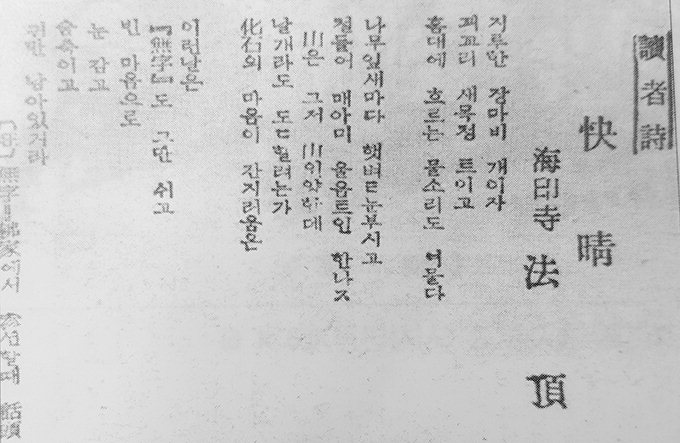 讀者詩
快晴
海印寺 法頂
지루한 장마비 개이자
꾀꼬리 새목청 트이고
홈대에 흐르는 물소리도 여물다
나무잎새마다 햇볕 눈부시고
매아미 울음트인 한나ㅈ
山은 그저 山인양한데
날개라도 도ㄷ칠려는가
化石의 마음이 간지러움은
이런날은
『無字』도 그만 쉬고
빈 마음으로
눈 감고
숨죽이고
귀만 남아있거라
無字=禪家에서 參禪할때 話頭